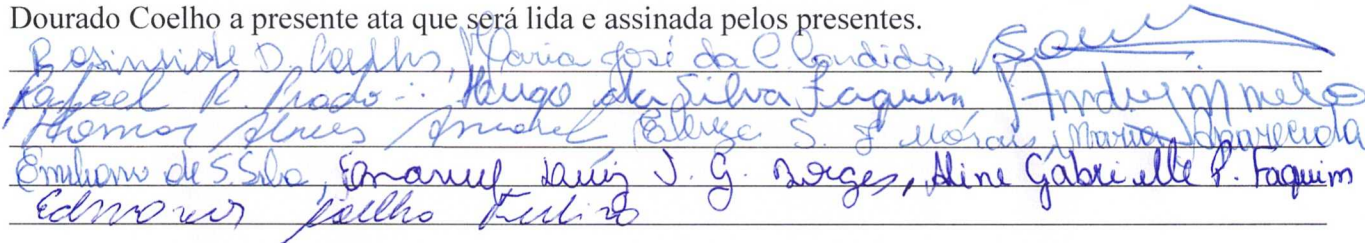 Dourado Coelho a presente ata que será lida e assinada pelos presentes.
Rosineide D. Coelho, Maria José da C. Candido,
Rafael R. Prado Hugo da Silva Faquim
Thomas Alves S. F. Morais, Maria Aparecida
Emiliano de S. Silva, Emanuel Luiz J. G. Borges, Aline Gabrielle P. Faquim
Coelho